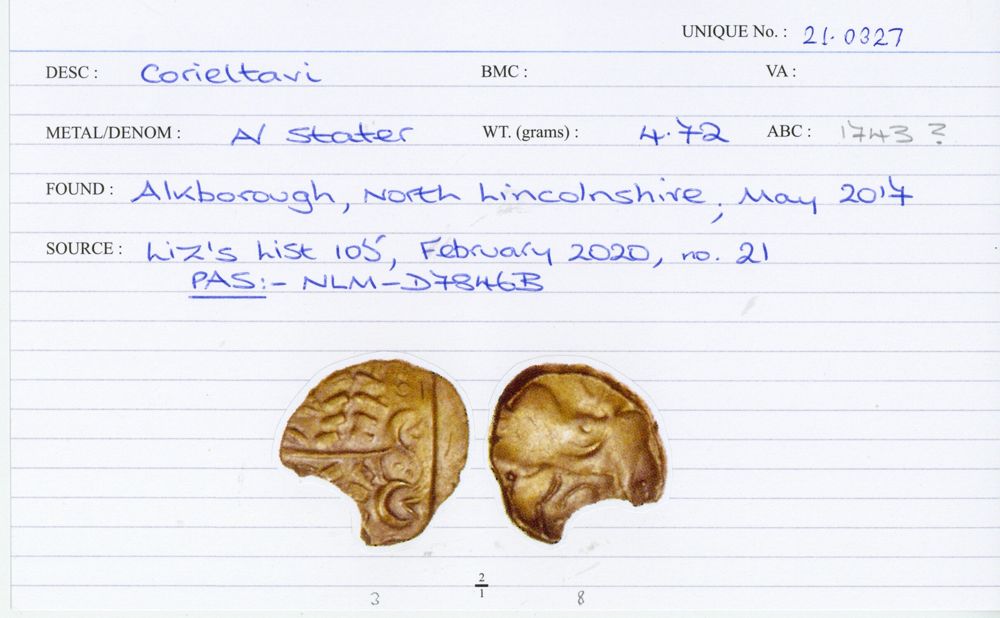 UNIQUE No. : 21.0327
DESC : Corieltavi BMC : VA :
METAL/DENOM : A/ Stater WT. (grams) : 4.72 ABC : 1743 ?
FOUND : Alkborough, North Lincolnshire, May 2017
SOURCE : Liz's List 105, February 2020, no. 21
PAS:- NLM-D7846B
2
1
3 8